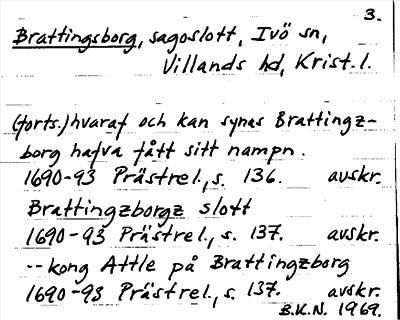 3.
Brattingsborg, sagoslott, Ivö sn,
Villands hd, Krist. l.
(forts.) hvaraf och kan synas Brattingz-
borg hafva fått sitt nampn.
1690-93 Prästrel., s. 136. avskr.
Brattingzborgz slott
1690-93 Prästrel., s. 137. avskr.
-- kong Attle på Brattingzborg
1690-93 Prästrel., s. 137. avskr.
B.K.N. 1969.